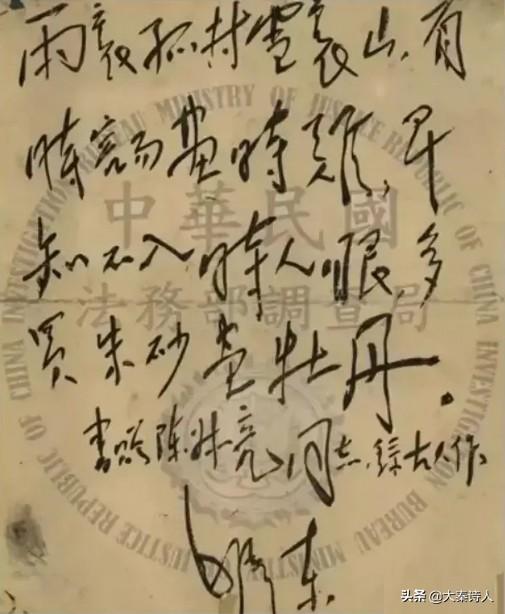 雨裏孤村雪裏山，看
時容易畫時難，早
知不入時人眼，多
買朱砂畫牡丹。
書贈陳亮同志，錄古人作
東
INVESTIGATION BUREAU MINISTRY OF JUSTICE REPUBLIC OF CHINA INVESTIGATION BUREAU MINISTRY OF JUSTICE REPUBLIC OF CHINA
中華民國
法務部調查局
头条 @大秦诗人